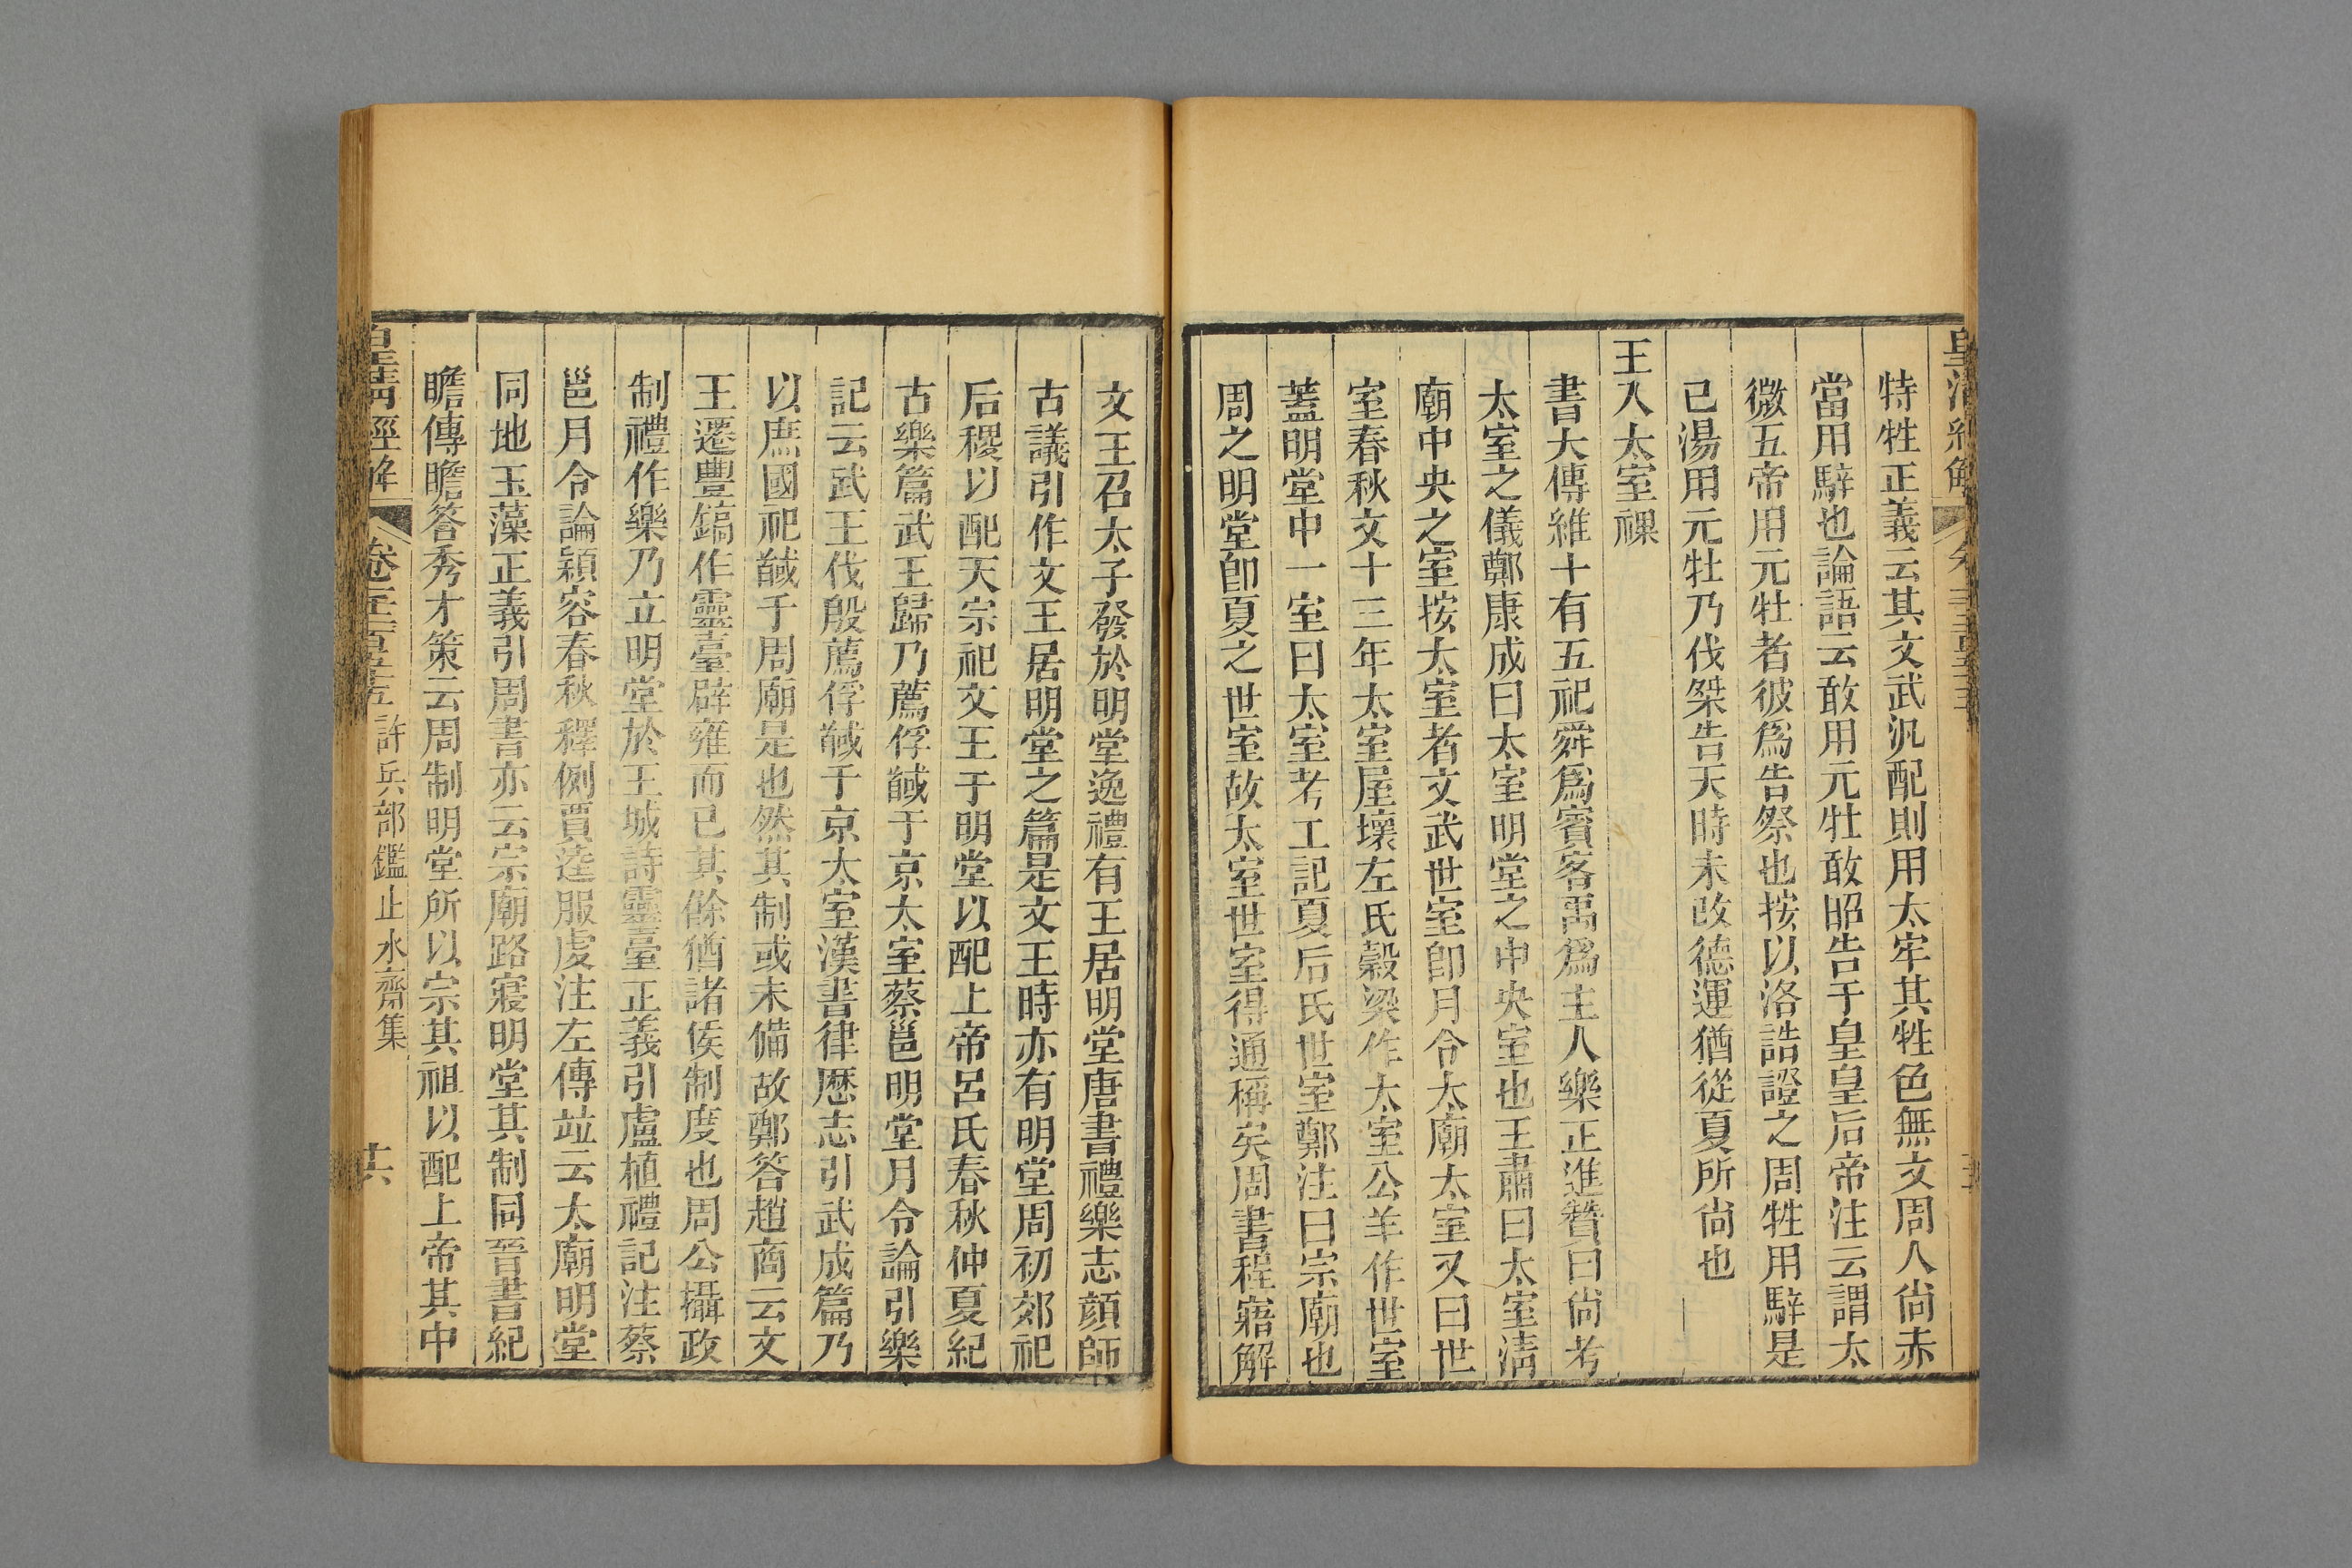 特牲正義云其文武汎配則用太牢其牲色無文周人尙赤
當用騂也論語云敢用元牡敢昭告于皇皇后帝注云謂太
微五帝用元牡者彼爲告祭也按以洛誥證之周牲用騂是
已湯用元牡乃伐桀告天時未改德運猶從夏所尙也
王入太室祼
書大傳維十有五祀舜爲賓客禹爲主人樂正進贊曰尙考
太室之儀鄭康成曰太室明堂之中央室也王肅曰太室淸
廟中央之室按太室者文武世室卽月令太廟太室又曰世
室春秋文十三年太室屋壞左氏榖梁作太室公羊作世室
蓋明堂中一室曰太室考工記夏后氏世室鄭注曰宗廟也
周之明堂卽夏之世室故太室世室得通稱矣周書程寤解
文王召太子發於明堂逸禮有王居明堂唐書禮樂志顔師
古議引作文王居明堂之篇是文王時亦有明堂周初郊祀
后稷以配天宗祀文王于明堂以配上帝呂氏春秋仲夏紀
古樂篇武王歸乃薦俘馘于京太室蔡邕明堂月令論引樂
記云武王伐殷薦俘馘于京太室漢書律歷志引武成篇乃
以庶國祀馘于周廟是也然其制或未備故鄭答趙商云文
王遷豐鎬作靈臺辟雍而已其餘猶諸侯制度也周公攝政
制禮作樂乃立明堂於王城詩靈臺正義引盧植禮記注蔡
邕月令論穎容春秋釋例賈逵服虔注左傳竝云太廟明堂
同地玉藻正義引周書亦云宗廟路寢明堂其制同晉書紀
瞻傳瞻答秀才策云周制明堂所以宗其祖以配上帝其中
皇淸經解 卷三百三十五 許兵部鑑止水齋集